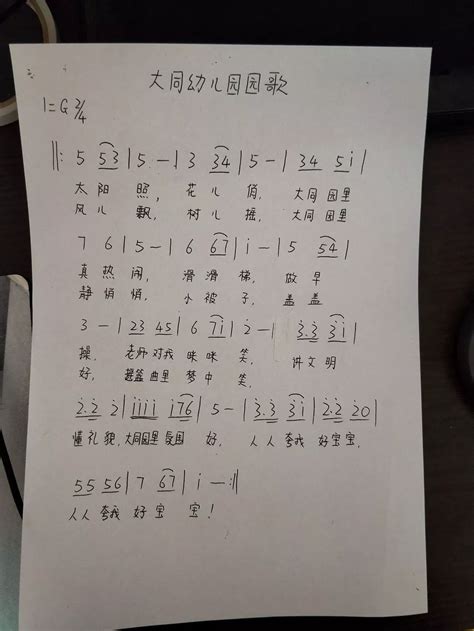 大同幼儿园园歌
1=G 2/4
‖: 5 53 | 5 - | 3 34 | 5 - | 34 5i |
太阳 照, 花儿 俏, 大同园里
风儿 飘, 树儿 摇, 大同园里
7 6 | 5 - | 6 67 | i - | 5 54 |
真热闹, 滑滑梯, 做早
静悄悄, 小被子, 盖盖
3 - | 23 45 | 6 7i | 2̇ - | 3̇.3̇ 3̇i |
操, 老师对我咪咪笑, 讲文明
好, 摇篮曲里梦中笑,
2̇.2̇ 2̇ | iiii i76 | 5 - | 3̇.3̇ 3̇i | 2̇.2̇ 2̇0 |
懂礼貌,大同园里 好, 人人夸我好宝宝,
55 56 | 7 67 | i - :‖
人人夸我好宝宝!